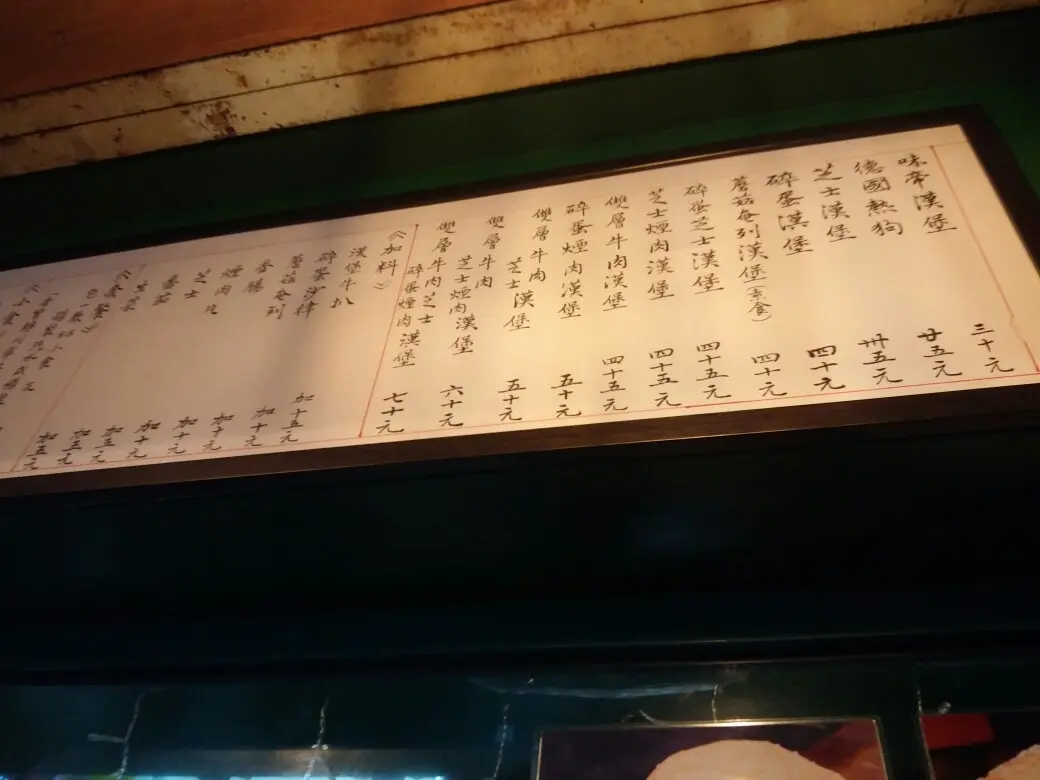 味帝漢堡 三十元
德國熱狗 廿五元
芝士漢堡 卅五元
碎蛋漢堡 四十元
蘑菇奄列漢堡(素食) 四十元
碎蛋芝士漢堡 四十五元
芝士煙肉漢堡 四十五元
雙層牛肉漢堡 四十五元
碎蛋煙肉漢堡 五十元
雙層牛肉
芝士漢堡 五十元
雙層牛肉
芝士煙肉漢堡 六十元
雙層牛肉芝士
碎蛋煙肉漢堡 七十元
《加料》
漢堡牛扒 加十五元
碎蛋 加十元
蘑菇奄列 加十元
香腸 加十元
煙肉 加十元
芝士 加五元
番茄 加五元
生菜 加五元
《套餐》